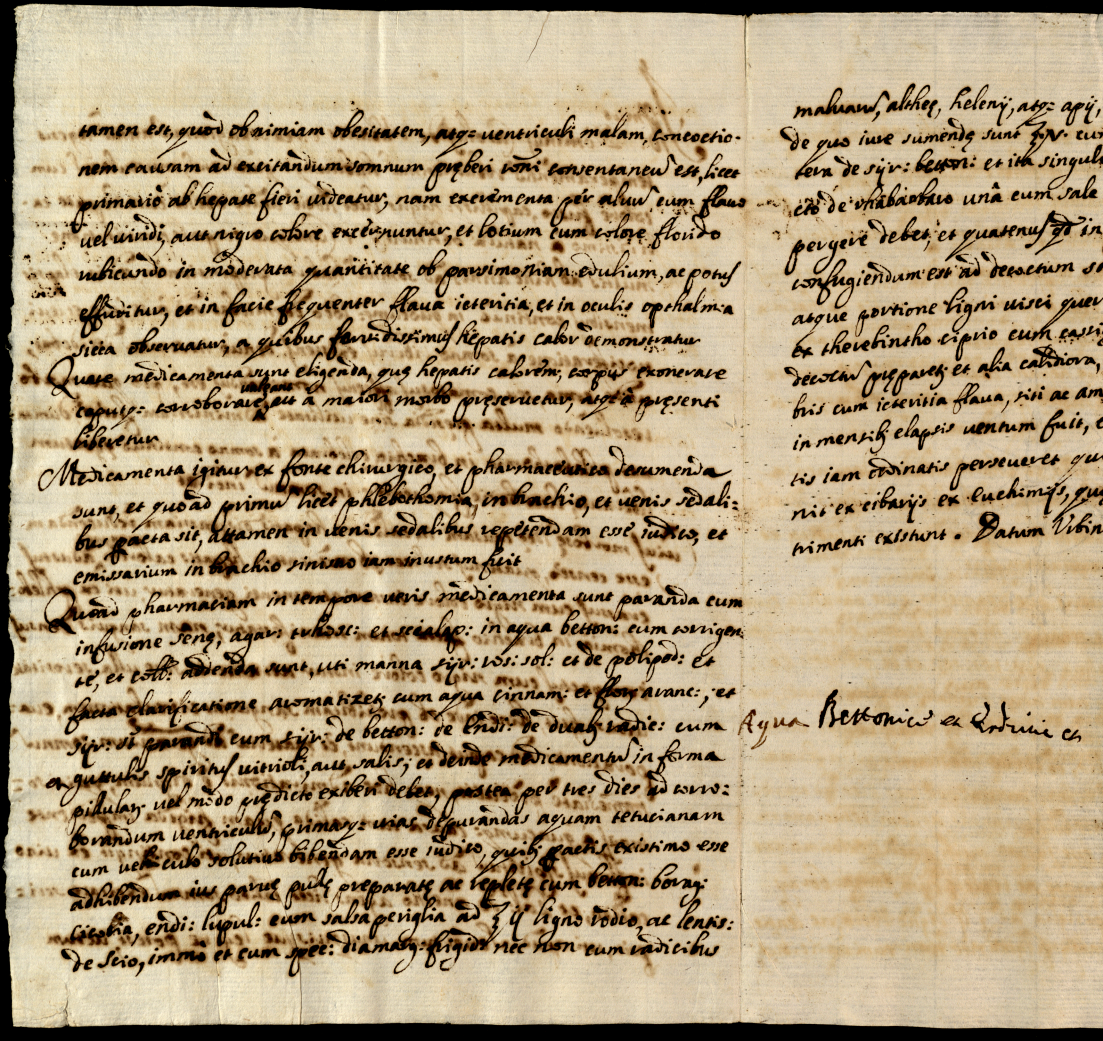 tamen est, quod ob nimiam obesitatem, atq; ventriculi malam, concoctio-
nem causam ad excitandum somnum pręberi roni consentaneū est, licet
primario ab hepate fieri videatur, nam excrementa per aluū cum flauo
vel viridi, aut nigro colore excernuntur, et lotium cum colore florido
rubicundo in moderata quantitate ob parsimoniam edulium, ac potus
effunditur, et in facie frequenter flaua icteritia, et in oculis opthalmia
sicca obseruatur, a quibus feruidissimus hepatis calor demonstratur
Quare medicamenta sunt eligenda, quę hepatis calorem, corpus exonerare
caputq; corroborare valeant, ut a maiori morbo pręseruetur, atq; a pręsenti
liberetur
Medicamenta igitur ex fonte chirurgico, et pharmaceutico desumenda
sunt, et quoad primū licet phlebothomia, in brachio, et venis sedali-
bus facta sit, attamen in venis sedalibus repetendam esse iudico, et
emissarium in brachio sinistro iam inustum fuit
Quoad pharmaciam in tempore veris medicamenta sunt paranda cum
infusione senę, agari trhosc: et scialap: in aqua betton: cum corrigen
te, et coll: addenda sunt, uti manna syr: ros: sol: et de polipod: et
facta clarificatione aromatizetȝ cum aqua cinnam: et flor aranc:, et
syr: cum syr: de betton: de Endi: de duabȝ radic: cum
guttulis spiritus vitrioli, aut salis; et deinde medicamentū in forma
pillularȝ vel modo prędicto exiberi debet, postea per tres dies ad corro-
borandum ventriculū, primasq; vias depurandas aquam tetucianam
cum vehiculo solutiuo bibendam esse iudico, quibȝ factis existimo esse
adhibendum ius paruę pullę preparatę ac repletę cum betton: borag:
cicorbia, endi: lupul: cum salsa periglia ad ʒ ij ligno rodio, ac lentis:
de Scio, immo et cum spec: diamarg: frigid: nec non cum radicibus
maluarū, altheę, helenij, atq; apij,
de quo iure sumendę sunt cum
tera de syr: betton: et ita singul
cto de rhabarbaro unà cum sale
pergere debet, et quatenus in
confugiendum est ad decoctum s
atque portione ligni visci quer
ex therebintho ciprio cum casti
decoctū pręparetȝ et alia calidiora,
bris cum icteritia flaua, siti ac am
in mensibȝ elapsis ventum fuit, e
tis iam ordinatis perseueret qu
nit ex cibarijs ex euchimijs, qu
trimenti existunt. Datum Urbin
Aqua Bettonicę et et